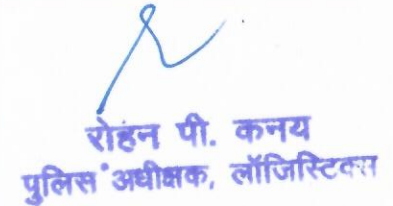 रोहन पी. कनय
पुलिस अधीक्षक, लॉजिस्टिक्स